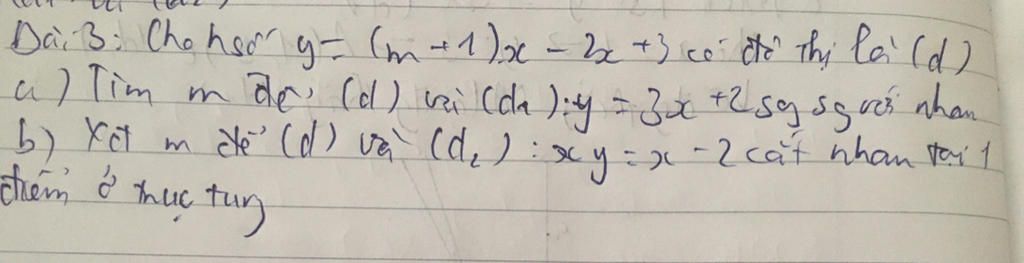 Bài 3: Cho hsố y = (m+1)x - 2x + 3 có đồ thị là (d)
a) Tìm m để (d) và (d1): y = 3x + 2 sg sg với nhau
b) Xđ m để (d) và (d2): xy = x - 2 cắt nhau tại 1
điểm ở trục tung